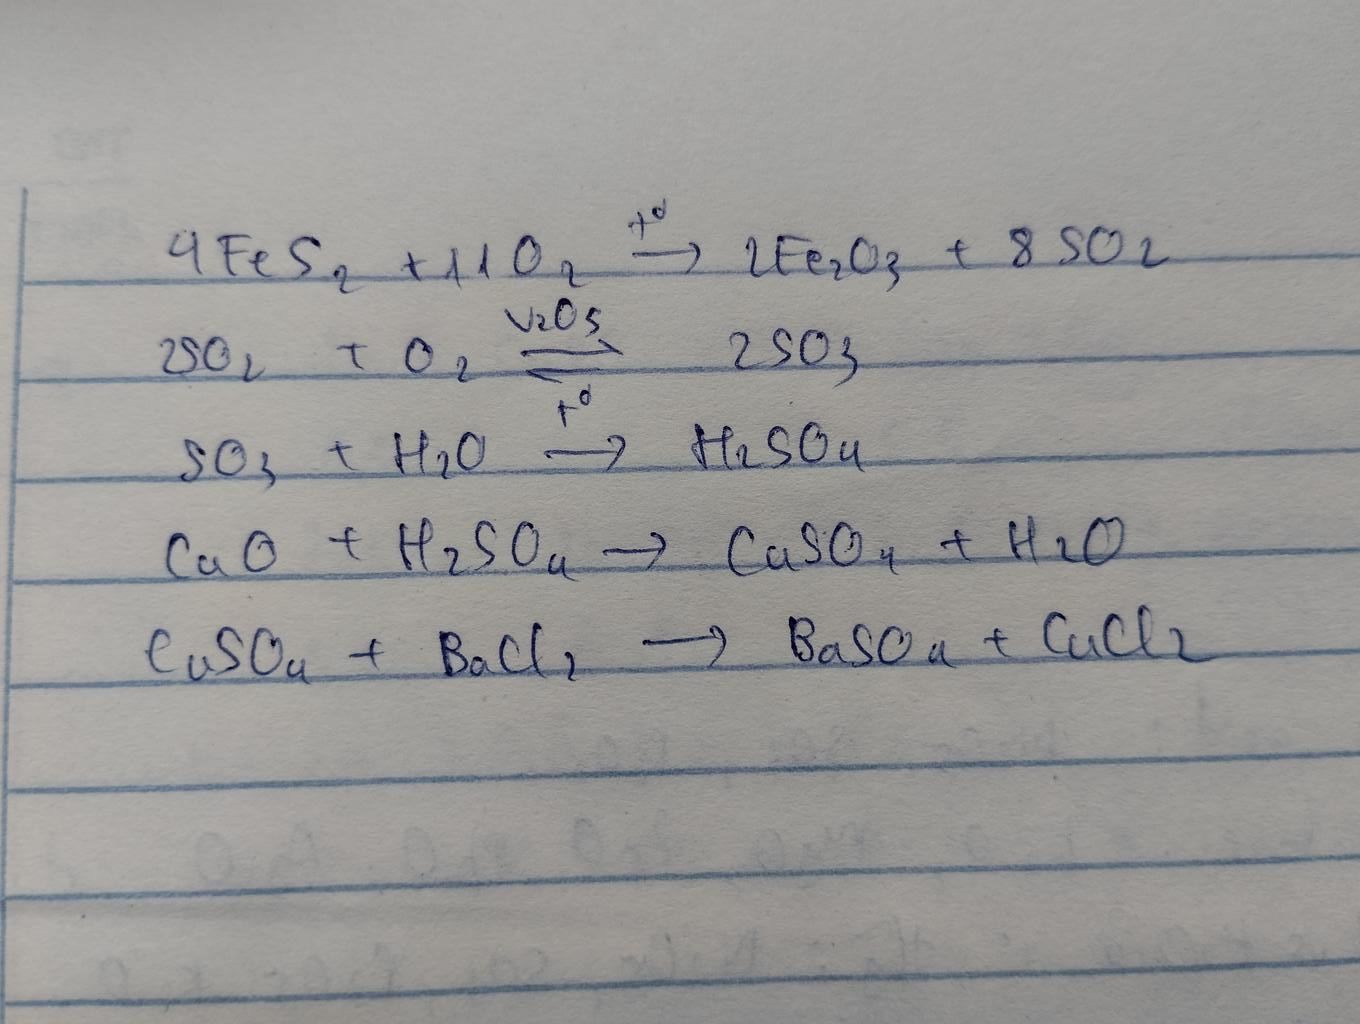 4FeS2 + 11O2 →(t°) 2Fe2O3 + 8SO2
2SO2 + O2 ⇌(V2O5, t°) 2SO3
SO3 + H2O → H2SO4
CuO + H2SO4 → CuSO4 + H2O
CuSO4 + BaCl2 → BaSO4 + CuCl2